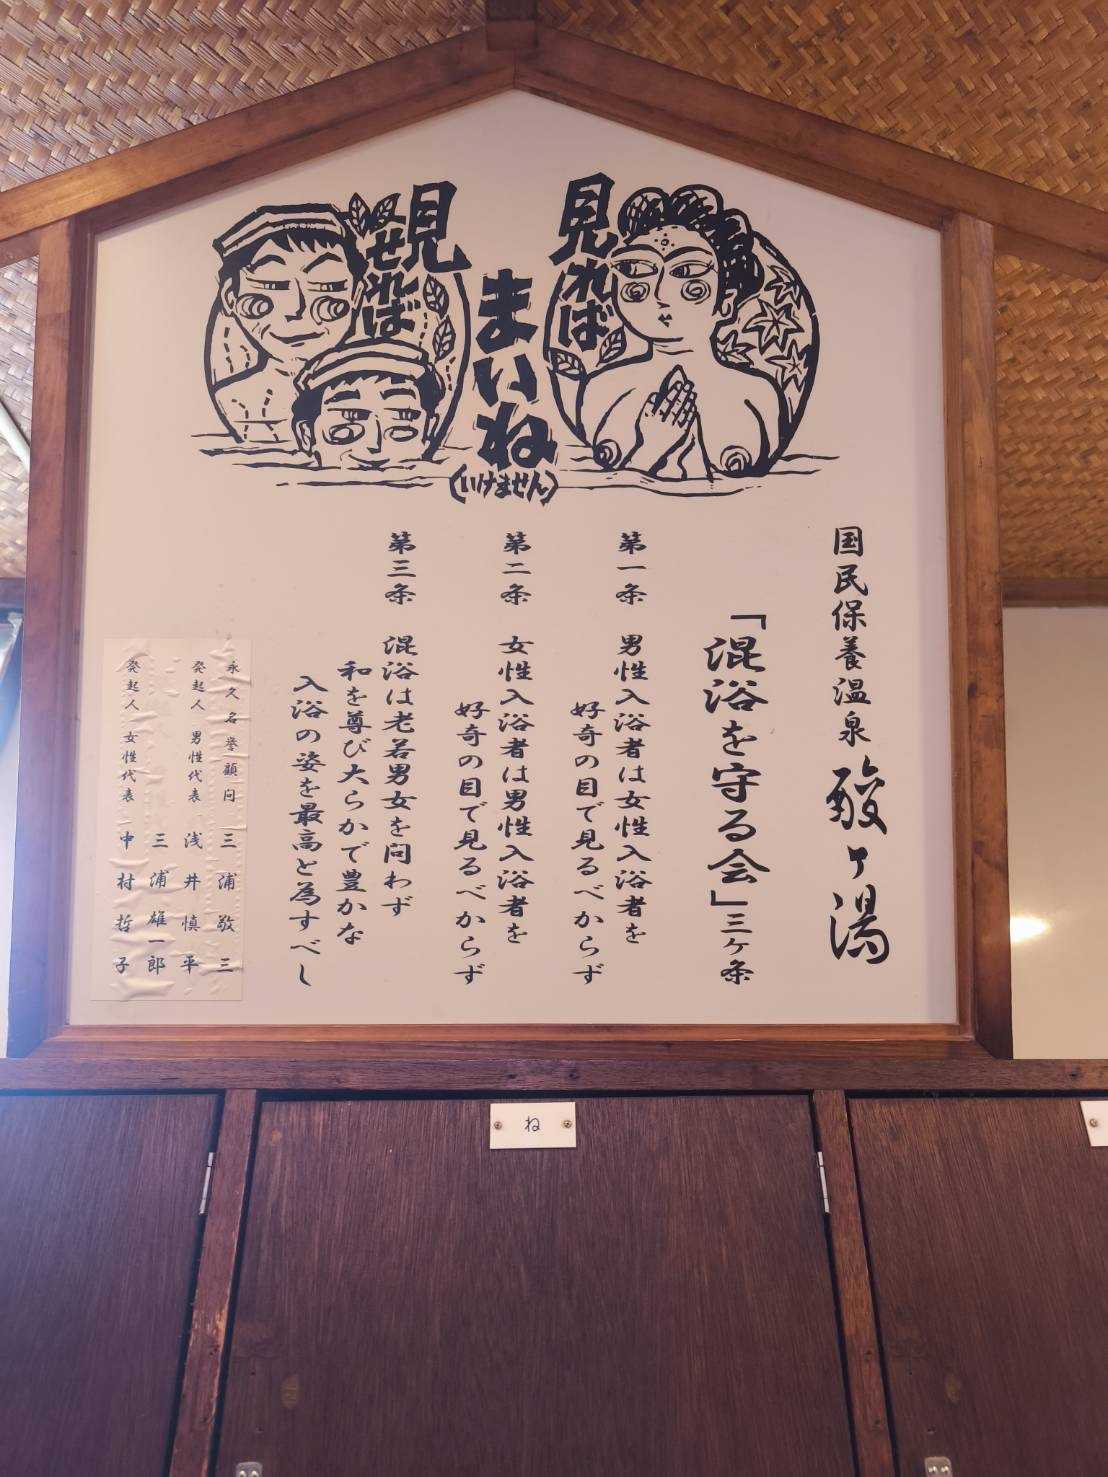 見れば
まいね
(いけません)
見せれば
国民保養温泉 酸ヶ湯
「混浴を守る会」三ヶ条
第一条 男性入浴者は女性入浴者を
好奇の目で見るべからず
第二条 女性入浴者は男性入浴者を
好奇の目で見るべからず
第三条 混浴は老若男女を問わず
和を尊び大らかで豊かな
入浴の姿を最高と為すべし
永久名誉顧問 三浦敬三
発起人 男性代表 浅井慎平
三浦雄一郎
発起人 女性代表 中村哲子
ね